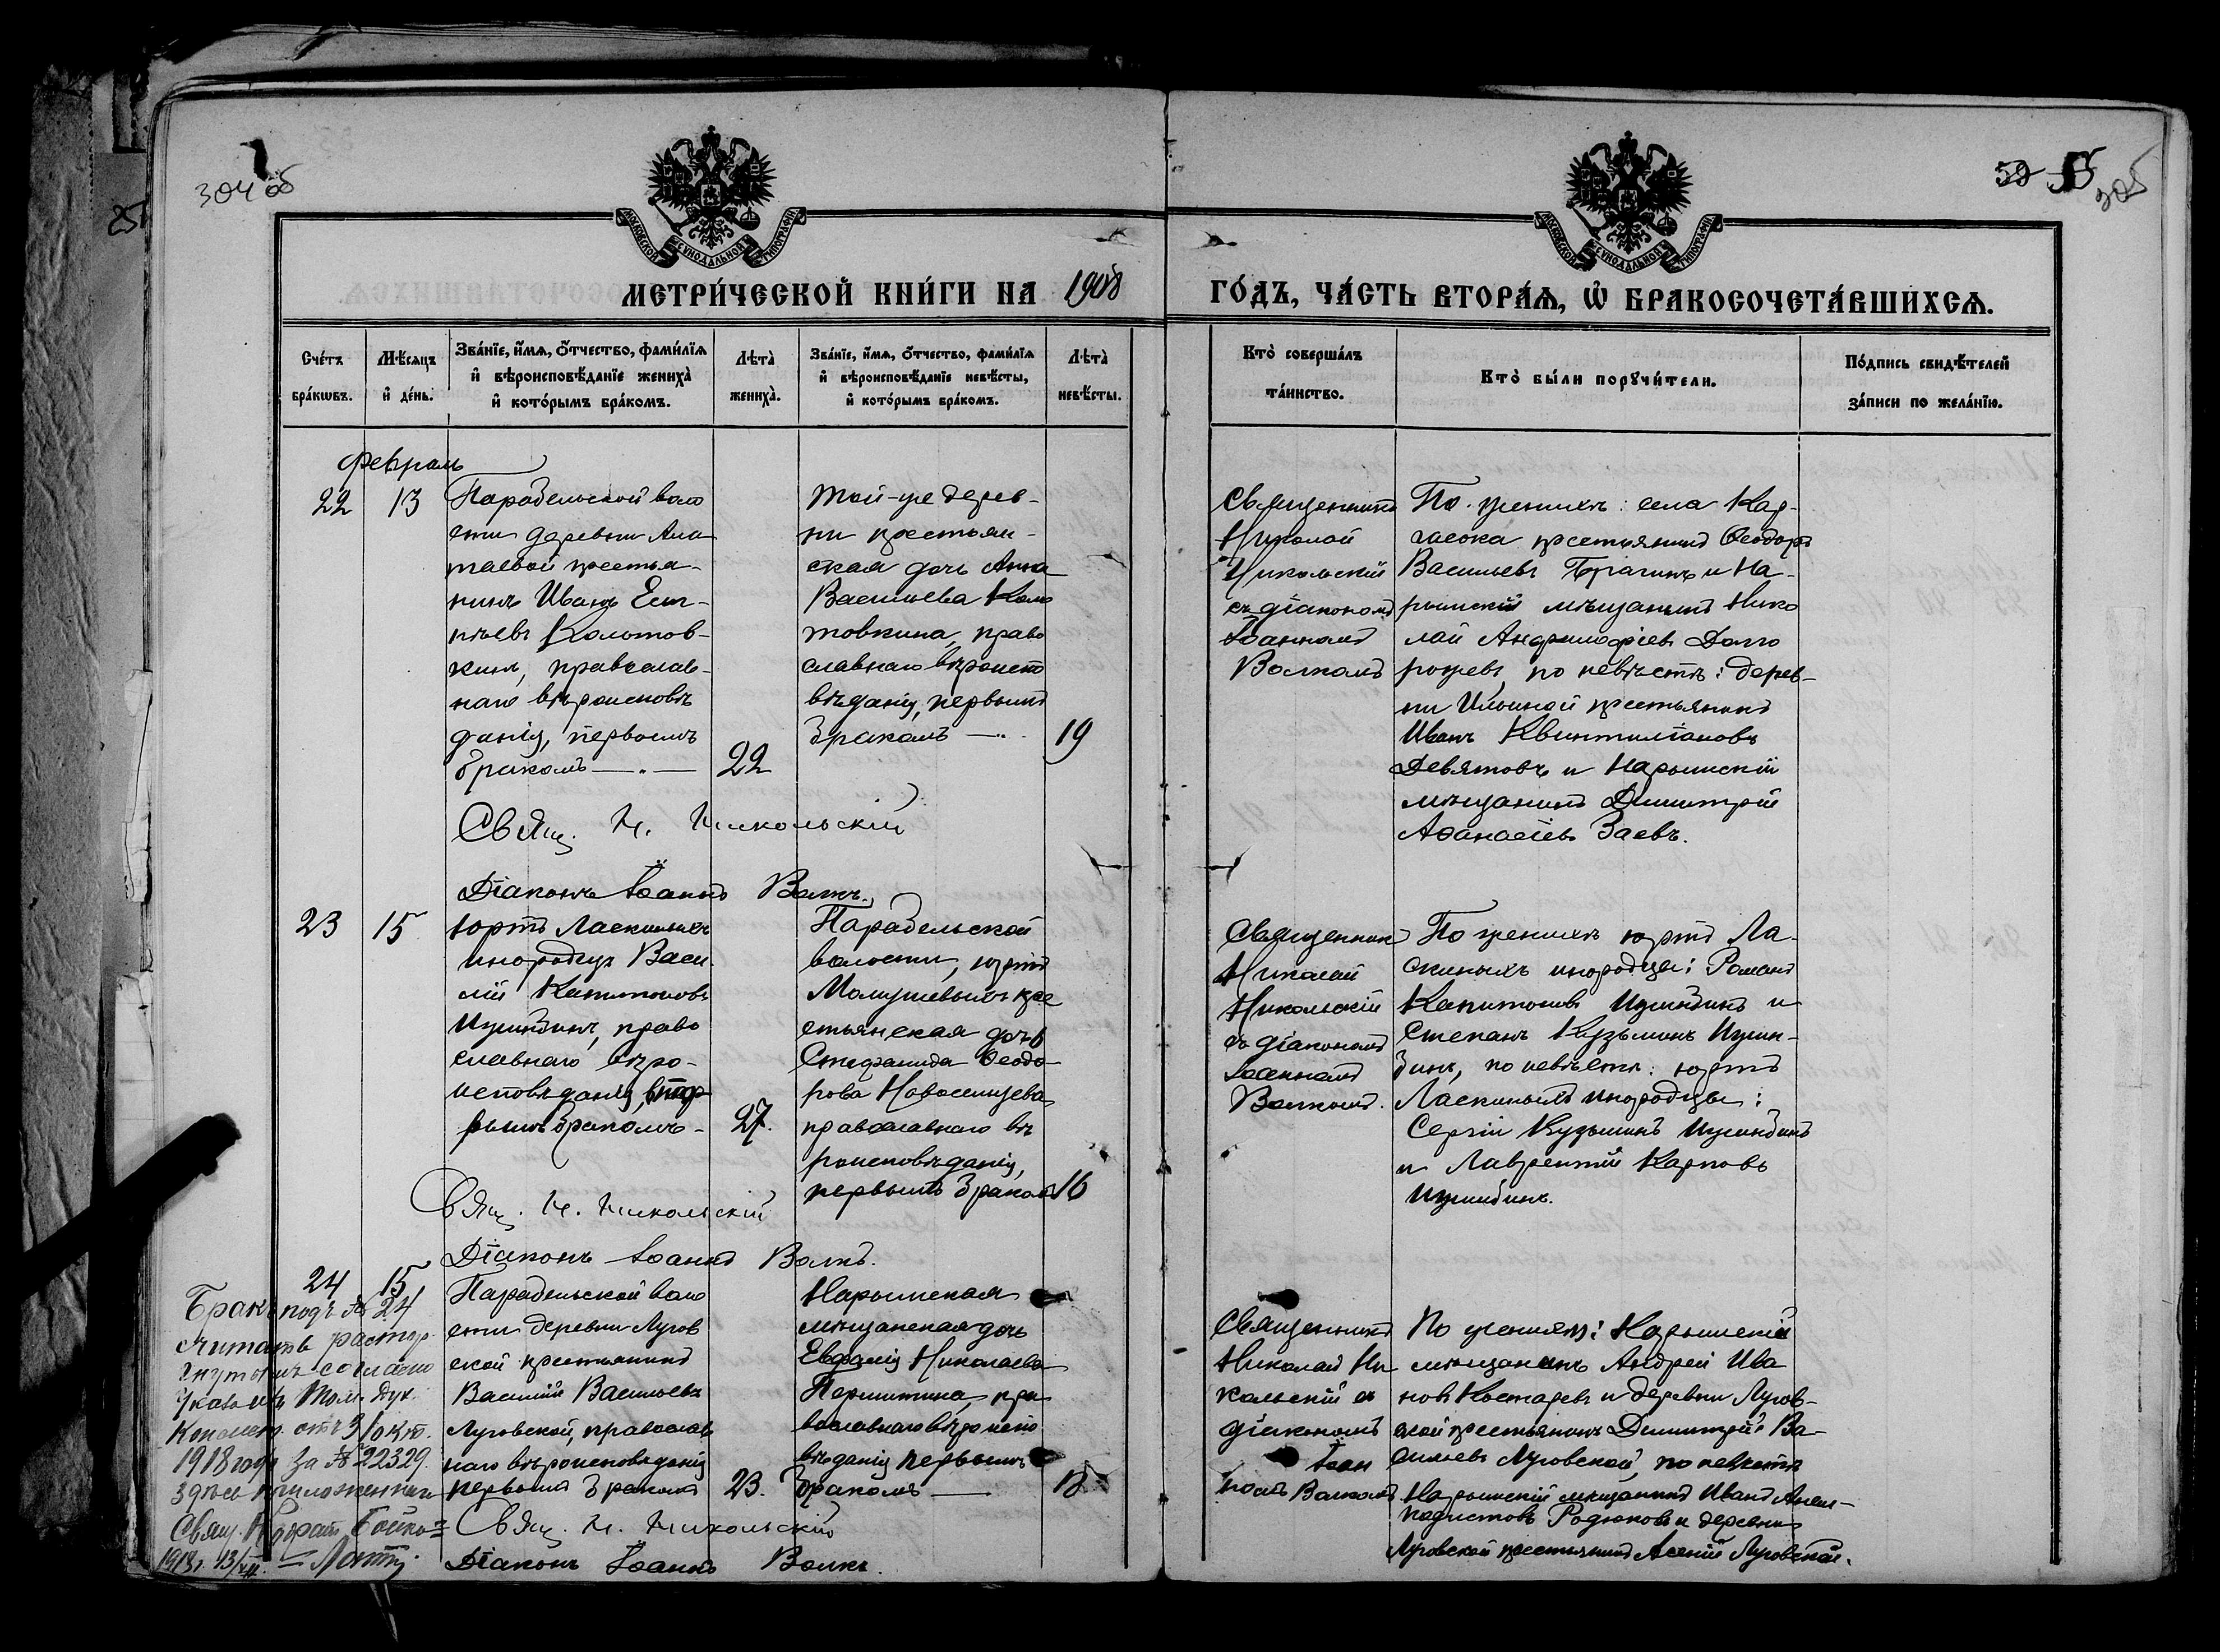 304 об
59
305
МОСКОВСКОЙ СѴНОДАЛЬНОЙ ТИПОГРАФІИ
МОСКОВСКОЙ СѴНОДАЛЬНОЙ ТИПОГРАФІИ
МЕТРИ́ЧЕСКОЙ КНИ́ГИ НА 1908
ГО́ДЪ, ЧА́СТЬ ВТОРА́Ѧ, Ѡ҆ БРАКОСОЧЕТА́ВШИХСѦ.
Сче́тъ
бра́кѡвъ.
Мѣ́сѧцъ
и҆ де́нь.
Зва́нїе, и҆́мѧ, о҆́тчество, фами́лїѧ
и҆ вѣроисповѣ́данїе жениха̀
и҆ кото́рымъ бра́комъ.
Лѣта̀
жениха̀.
Зва́нїе, и҆́мѧ, о҆́тчество, фами́лїѧ
и҆ вѣроисповѣ́данїе невѣ́сты,
и҆ кото́рымъ бра́комъ.
Лѣта̀
невѣ́сты.
Кто̀ соверша́лъ
та́инство.
Кто̀ бы́ли порꙋчи́тели.
По́дпись свидѣ́телей
за́писи по жела́нїю.
Февраль
22
13
Парабельской воло
сти деревни Ала
таевой крестья-
нинъ Иванъ Евг-
ньевъ Колотов-
кинъ, православ-
наго вѣроисповѣ
данія, первымъ
бракомъ —„—
22
Той-же дерев-
ни крестьян-
ская дочь Анна
Васильева Коло
товкина, право
славнаго вѣроиспо
вѣданія, первымъ
бракомъ —„—
19
Священникъ
Николай
Никольскій
съ діакономъ
Іоанномъ
Волкомъ
По женихѣ: села Кар-
гасока крестьянинъ Ѳеодоръ
Васильевъ Брагинъ и На-
рымскій мѣщанинъ Нико
лай Андроновъ Долго
рожевъ, по невѣстѣ: дерев-
ни Ильиной крестьянинъ
Иванъ Квинтиліановъ
Девятовъ и Нарымскій
мѣщанинъ Димитрій
Аѳанасіевъ Заевъ.
Свящ. Н. Никольскій
Діаконъ Іоаннъ Волкъ.
23
15
Юртъ Ласкиныхъ
инородецъ Васи
лій Капитоновъ
Ижинбинъ, право
славнаго вѣро-
исповѣданія, вто
рымъ бракомъ -
27.
Парабельской
волости, юртъ
Мамушевыхъ кре
стьянская дочь
Стефанида Ѳеодо
рова Новосельцева
православнаго вѣ
роисповѣданія,
первымъ бракомъ
16
Священникъ
Николай
Никольскій
съ діакономъ
Іоанномъ
Волкомъ.
По женихѣ юртъ Ла-
скиныхъ инородцы: Романъ
Капитоновъ Ижинбинъ и
Степанъ Кузьминъ Ижин-
бинъ, по невѣстѣ: юртъ
Ласкиныхъ инородцы:
Сергій Кузьминъ Ижинбинъ
и Лаврентій Карповъ
Ижинбинъ.
Свящ. Н. Никольскій
Діаконъ Іоаннъ Волкъ.
24
15
Парабельской воло
сти деревни Лугов
ской крестьянинъ
Василій Васильевъ
Луговской, православ
наго вѣроисповѣданія
первымъ бракомъ
23.
Нарымская
мѣщанская дочь
Евфалія Николаева
Першитина, пра
вославнаго вѣроиспо
вѣданія первымъ
бракомъ —
Священникъ
Николай Ни
кольскій съ
діакономъ
Іоан
номъ Волкомъ
По женихѣ: Нарымскій
мѣщанинъ Андрей Ива
новъ Костаревъ и деревни Лугов-
ской крестьянинъ Димитрій Ва-
сильевъ Луговской, по невѣстѣ
Нарымскій мѣщанинъ Иванъ Анем-
подистовъ Родюковъ и деревни
Луговской крестьянинъ Луговской.
Свящ. Н. Никольскій
Діаконъ Іоаннъ Волкъ.
Бракъ подъ № 24
считать расторг
гнутымъ согласно
указомъ Том. Дух.
Консист. отъ 3/окт.
1918 года за № 22329.
здѣсь приложенный
Свящ.
1918 г. 13/XII.